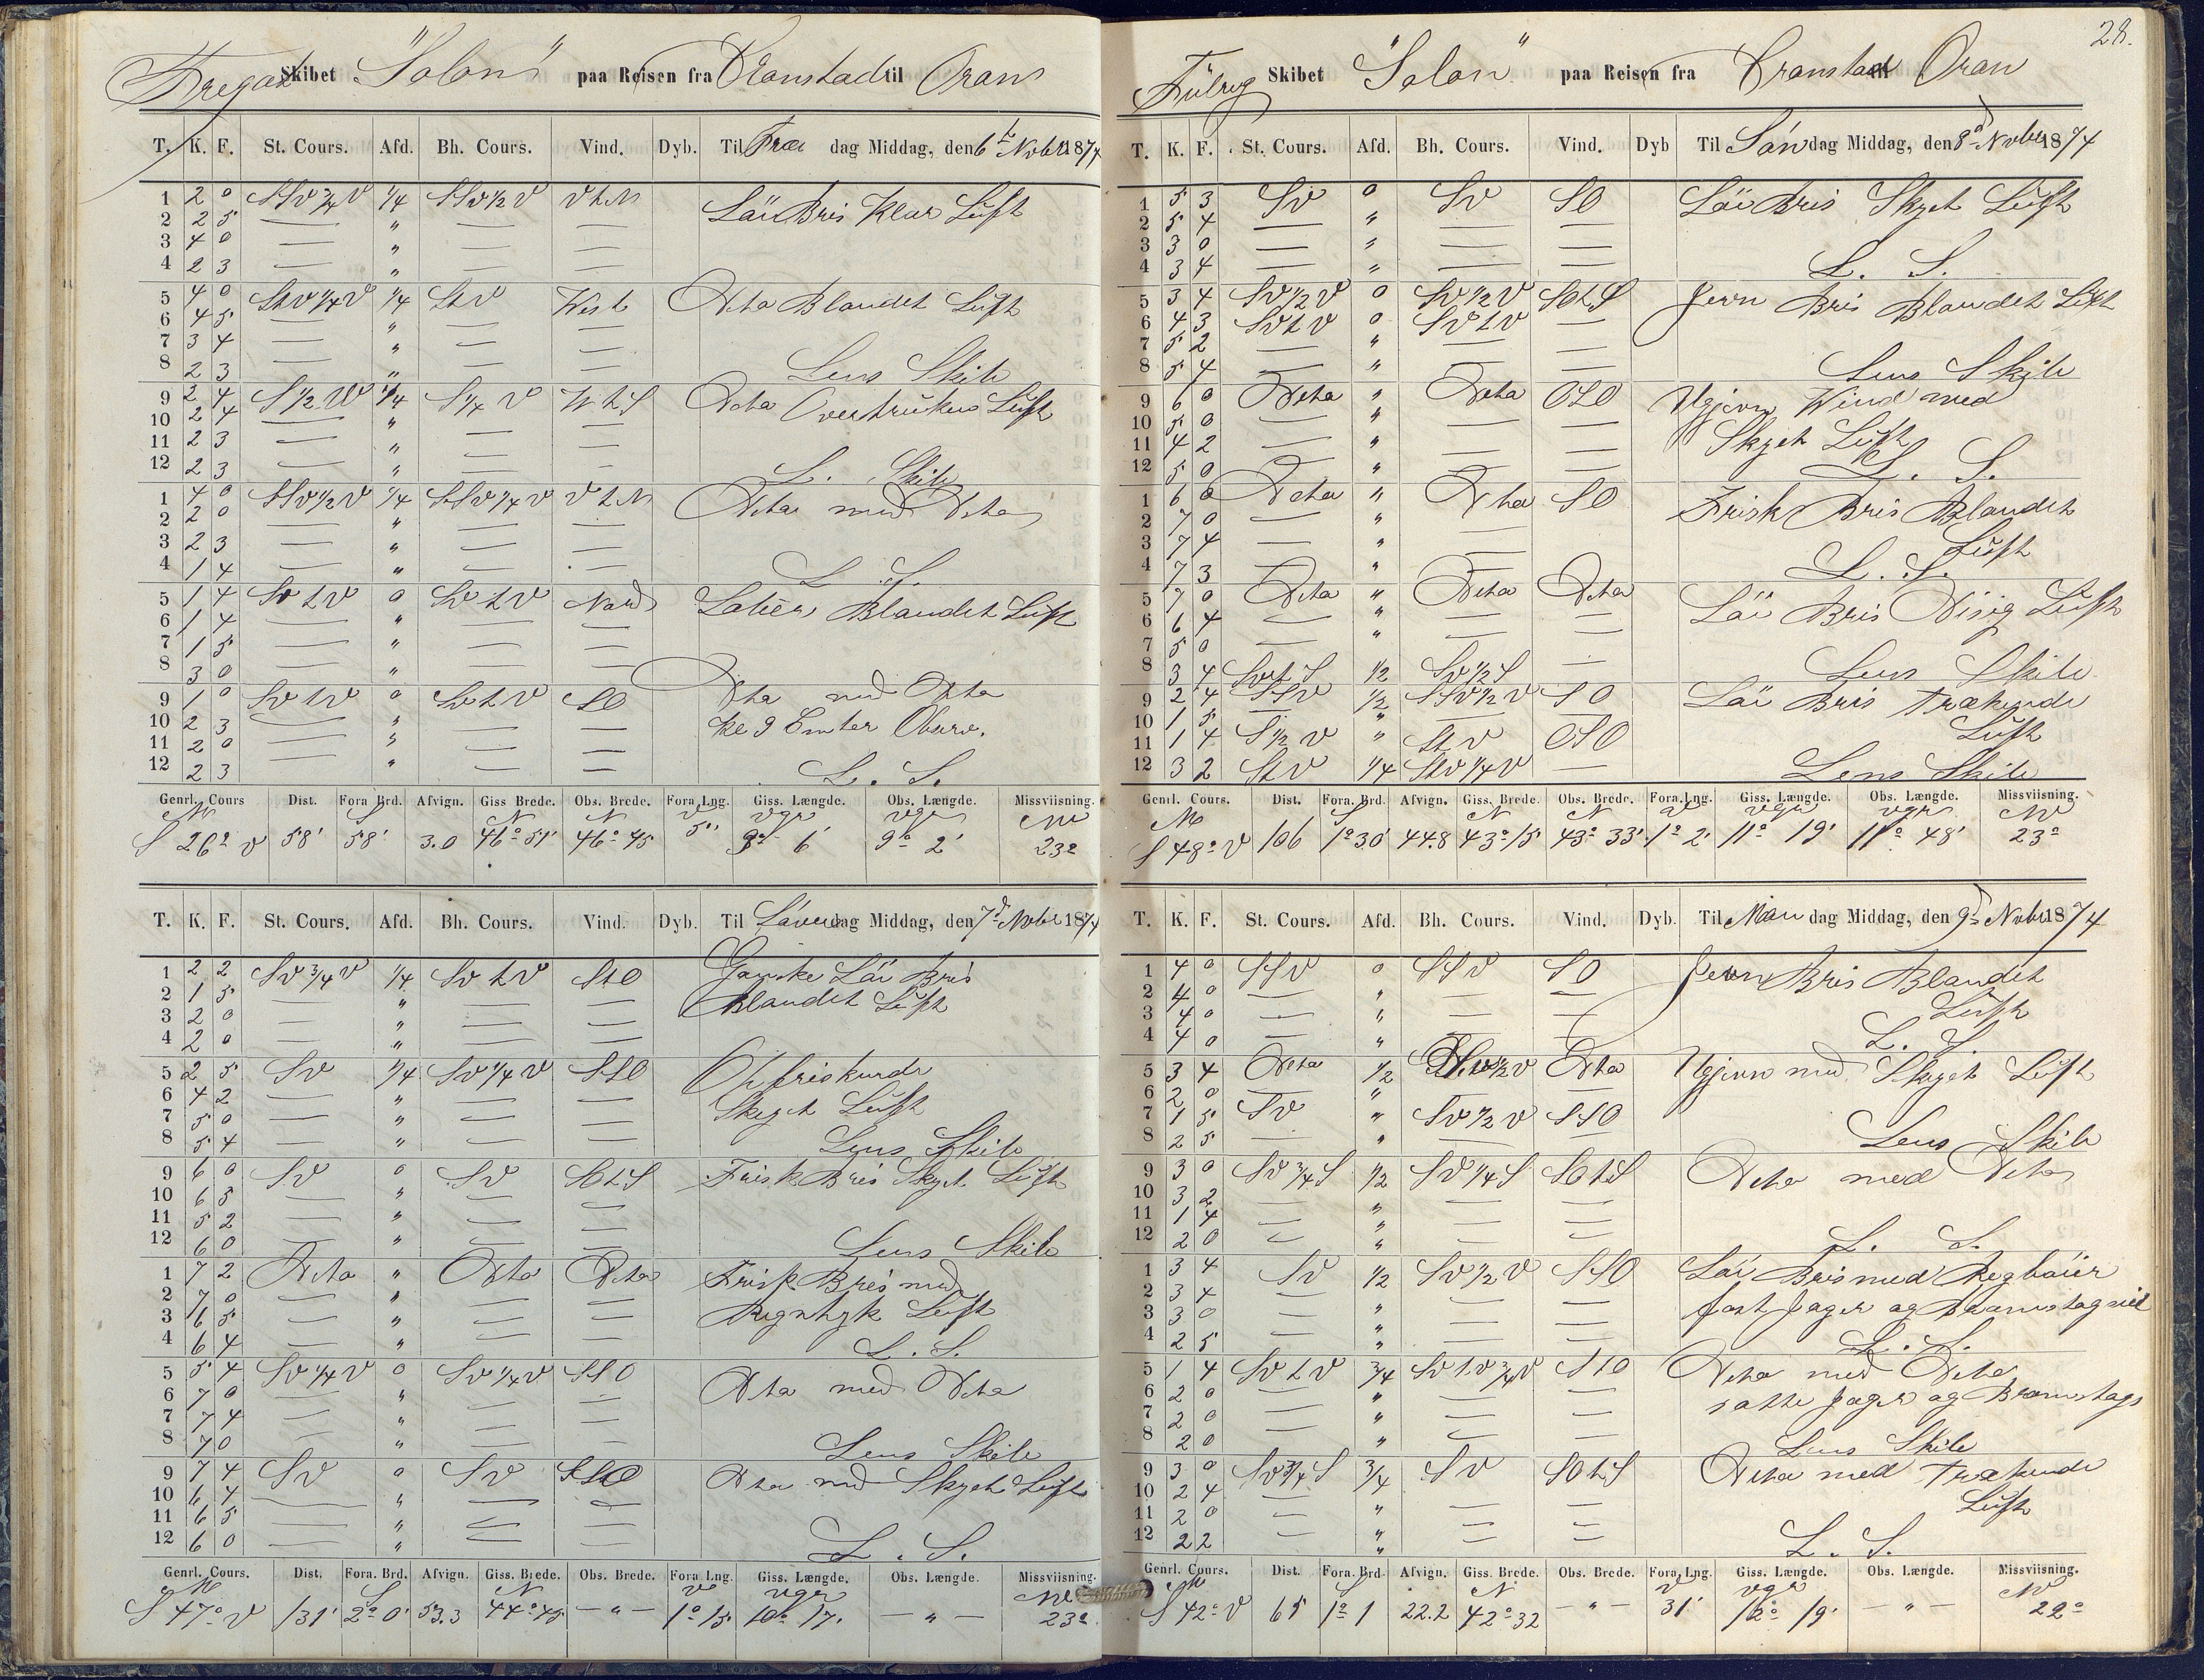 Fregat Skibet "Solon" paa Reisen fra Cronstad til Oran
T. K. F. St. Cours. Afd. Bh. Cours. Vind. Dyb. Til Fre dag Middag, den 6t Novbr 1874
1 2 0 SSV 3/4 V 1/4 SSV 1/2 V V t N Löi Bris Klar Luft
2 2 5 — " — —
3 4 0 — " — —
4 2 3 — " — —
5 4 0 StV 1/4 V 1/4 StV West Dito Blandet Luft
6 4 5 — " — —
7 3 4 — " — —
8 2 3 — " — — Lens Skib
9 2 4 S 1/2 W 1/4 S 1/4 V W t S Dito Overtrukken Luft
10 2 4 — " — —
11 2 3 — " — —
12 2 3 — " — — L. Skib
1 4 0 SSV 1/2 V 1/4 SSV 1/4 V V t N Dito med Dito
2 2 0 — " — —
3 2 3 — " — —
4 1 4 — " — — L. S.
5 1 4 SV t V 0 SV t V Nord Labär Blandet Luft
6 1 4 — " — —
7 1 5 — — —
8 3 0 — " — —
9 1 0 SV t V 0 SV t V SO Dito med Dito
10 2 3 — " — — Kl 9 Observ.
11 2 0 — " — —
12 2 3 — " — — L. S.
Genrl. Cours Dist. Fora. Brd. Afvign. Giss Brede. Obs. Brede. Fora. Lng. Giss. Længde. Obs. Længde. Missviisning.
M S N N V vgr vgr NV
S 26° V 58' 58' 3.0 46° 51' 46° 45 5' 9° 6' 9° 2' 23°
T. K. F. St. Cours. Afd. Bh. Cours. Vind. Dyb. Til Löver dag Middag, den 7d Novbr 1874
1 2 2 SV 3/4 V 1/4 SV t V StO Ganske Löi Bris
2 1 5 — " — — Blandet Luft
3 2 0 — " — —
4 2 0 — " — —
5 2 5 SV 1/4 SV 1/4 V SSO Opfriskende
6 4 2 — " — — Skyet Luft
7 5 0 — " — —
8 5 4 — " — — Lens Skib
9 6 0 SV 0 SV SO t S Frisk Bris Skyet Luft
10 6 5 — " — —
11 5 2 — " — —
12 6 0 — " — — Lens Skib
1 7 2 Dito " Dito Dito Frisk Bris med
2 7 0 — " — — Regntyk Luft
3 6 5 — " — —
4 6 4 — " — — L. S.
5 5 4 SV 1/4 V 0 SV 1/4 V SSO Dito med Dito
6 7 0 — " — —
7 7 4 — " — —
8 7 0 — " — — Lens Skib
9 7 4 SV 0 SV SSO Dito med Skyet Luft
10 6 4 — " — —
11 6 5 — " — —
12 6 0 — " — — L. S.
Genrl. Cours. Dist. Fora. Brd. Afvign. Giss. Brede. Obs. Brede. Fora. Lng. Giss. Længde. Obs. Længde. Missviisning.
M S N V vgr NV
S 47° V 131' 2° 0' 53.3 44° 45 — " — 1° 15' 10° 17' — " — 23°
28.
Fulrig Skibet "Solon" paa Reisen fra Cronstad Oran
T. K. F. St. Cours. Afd. Bh. Cours. Vind. Dyb Til Sön dag Middag, den 8d Novbr 1874
1 5 3 SV 0 SV SO Löi Bris Skyet Luft
2 5 4 — " — —
3 3 0 — " — —
4 3 4 — " — — L. S.
5 3 4 SV 1/2 V 0 SV 1/2 V SO t S Jevn Bris Blandet Luft
6 4 3 SV t V 0 SV t V —
7 5 2 — " — —
8 5 4 — " — — Lens Skib
9 6 0 Dito " Dito OSO Ujevn Wind med
10 5 0 — " — — Skyet Luft
11 4 2 — " — —
12 5 0 — " — — L. S.
1 6 0 Dito " Dito SO Frisk Bris Blandet
2 7 0 — " — Luft
3 7 4 — " —
4 7 3 — " — L. S.
5 7 0 Dito " Dito Dito Löi Bris Disig Luft
6 6 4 — " — —
7 5 0 — " — —
8 3 4 SV t S 1/2 SV 1/2 S — Lens Skib
9 2 4 SSV 1/2 SSV 1/2 V SO Löi Bris Trækende
10 1 5 — " — — Luft
11 1 4 S 1/2 V " St V OSO
12 3 2 St V 1/4 StV 1/4 V — Lens Skib
Genrl. Cours. Dist. Fora. Brd. Afvign. Giss. Brede. Obs. Brede. Fora. Lng. Giss. Længde. Obs. Længde. Missviisning.
M S N N V vgr vgr NV
S 48° V 106 1° 30' 44.8 43° 15' 43° 33' 1° 2' 11° 19' 11° 48' 23°
T. K. F. St. Cours. Afd. Bh. Cours. Vind. Dyb. Til Man dag Middag, den 9d Novbr 1874
1 4 0 SSV 0 SSV SO Jevn Bris Blandet
2 4 0 — " — — Luft
3 4 0 — " — —
4 4 0 — " — — L. S.
5 3 4 Dito 1/2 1/2 V Dito Ujevn med Skyet Luft
6 2 0 — " — —
7 1 5 SV " SV 1/2 V SSO
8 2 5 — " — — Lens Skib
9 3 0 SV 3/4 S 1/2 SV 1/4 S SO t S Dito med Dito
10 3 2 — " — —
11 1 4 — " — —
12 2 0 — " — — L. S.
1 3 4 SV 1/2 SV 1/2 V SSO Löi Bris med Regböier
2 3 4 — " — — fast Jager og Bramstagseil
3 3 0 — " — —
4 2 5 — " — — L. S.
5 1 4 SV t V 3/4 SV t V 3/4 V StO Dito med Dito
6 2 0 — " — — satte Jager og Bramstags
7 2 0 — " — —
8 2 0 — " — — Lens Skib
9 3 0 SV 3/4 S 3/4 SV SO t S Dito med Trækende
10 2 4 — " — — Luft
11 2 0 — " — —
12 2 2 — " — — L. S.
Genrl. Cours. Dist. Fora. Brd. Afvign. Giss. Brede. Obs. Brede. Fora. Lng. Giss. Længde. Obs. Længde. Missviisning.
M S N V vgr NV
S 42° V 65 1° 1 22.2 42° 32 — " — 31' 12° 19' — " — 22°